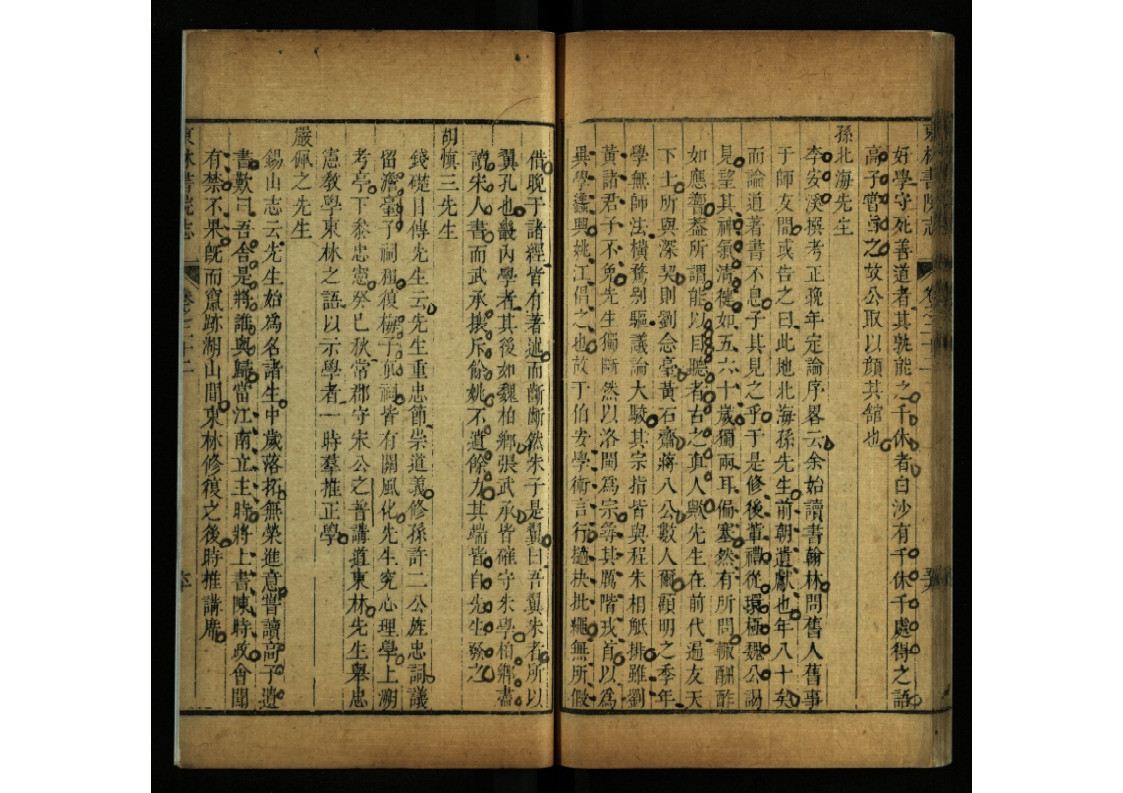 東林書院志 卷之二十二
好學守死善道者其孰能之千休者白沙有千休千處得之語
高子嘗尋之故公取以顏其館也
孫北海先生
李安溪撰考正晚年定論序畧云余始讀書翰林問舊人舊事
于師友間或告之曰此地北海孫先生前朝遺獻也年八十矣
而論道著書不息子其見之乎于是修後輩禮從環極魏公謁
見望其神氣淸健如五六十歲獨兩耳偏塞然有所問輒酬酢
如應響葢所謂能以目聽者古之眞人歟先生在前代過友天
下士所與深契則劉念臺黃石齋蔣八公數人爾顧明之季年
學無師法橫騖别驅議論大駮其宗指皆與程朱相觝排雖劉
黃諸君子不免先生獨斷然以洛閩爲宗等其厲階戎首以爲
異學蠭興姚江倡之也故于伯安學術言行擿抉批繩無所假
借晚于諸經皆有著述而斷斷然朱子是翼曰吾翼朱者所以
翼孔也畿內學者其後如魏柏鄉張武承皆確守朱學柏鄉書
讀宋人書而武承攘斥餘姚不遺餘力其端皆自先生發之
胡愼三先生
錢礎日傳先生云先生重忠節崇道義修孫許二公旌忠詞議
留澹臺子祠租復梅子眞祠皆有關風化先生究心理學上溯
考亭下叅忠憲癸巳秋常郡守宋公之普講道東林先生舉忠
憲敎學東林之語以示學者一時羣推正學
嚴佩之先生
錫山志云先生始爲名諸生中歲落拓無榮進意嘗讀高子遺
書歎曰吾舍是將誰與歸當江南立主時將上書陳時政會聞
有禁不果旣而竄跡湖山間東林修復之後時推講席
東林書院志 卷之二十二